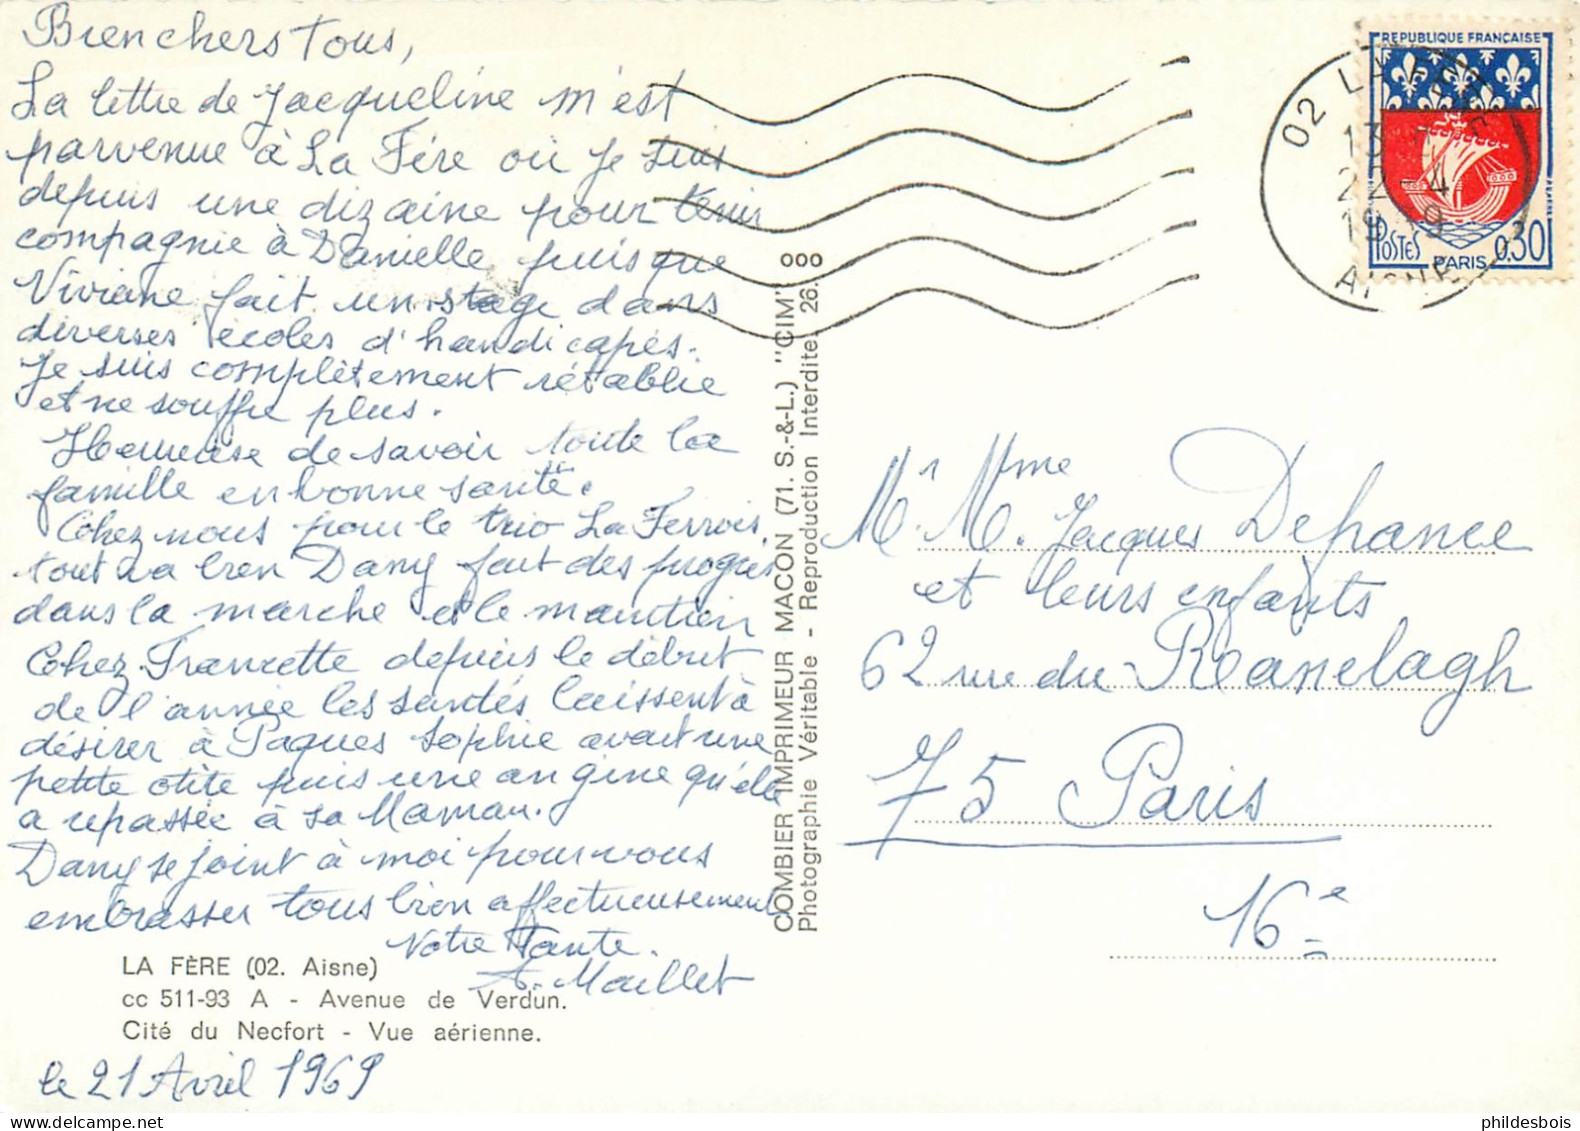 Bien chers tous,
La lettre de Jacqueline m'est
parvenue à La Fére où je suis
depuis une dizaine pour tenir
compagnie à Danielle puisque
Viviane fait un stage dans
diverses écoles d'handicapés.
Je suis complètement rétablie
et ne souffre plus.
Heureuse de savoir toute la
famille en bonne santé.
Chez nous pour le trio La Ferrois,
tout va bien Dany fait des progrès
dans la marche et le maintien
Chez Francette depuis le début
de l'année les santés laissent à
désirer à Paques Sophie avait une
petite otite puis une angine qu'elle
a repassée à sa Maman.
Dany se joint à moi pour vous
embrasser tous bien affectueusement
Votre Tante.
A. Maillet
LA FÈRE (02. Aisne)
cc 511-93 A - Avenue de Verdun.
Cité du Necfort - Vue aérienne.
le 21 Avril 1969
COMBIER IMPRIMEUR MACON (71. S.-&-L.) "CIM"
Photographie Véritable - Reproduction Interdite 26.
000
REPUBLIQUE FRANÇAISE
POSTES PARIS 0,30
02 LA FERE
13
22-4
1969
AISNE
Mr Mme Jacques Depance
et leurs enfants
62 rue du Ranelagh
75 Paris
16e
phildesbois